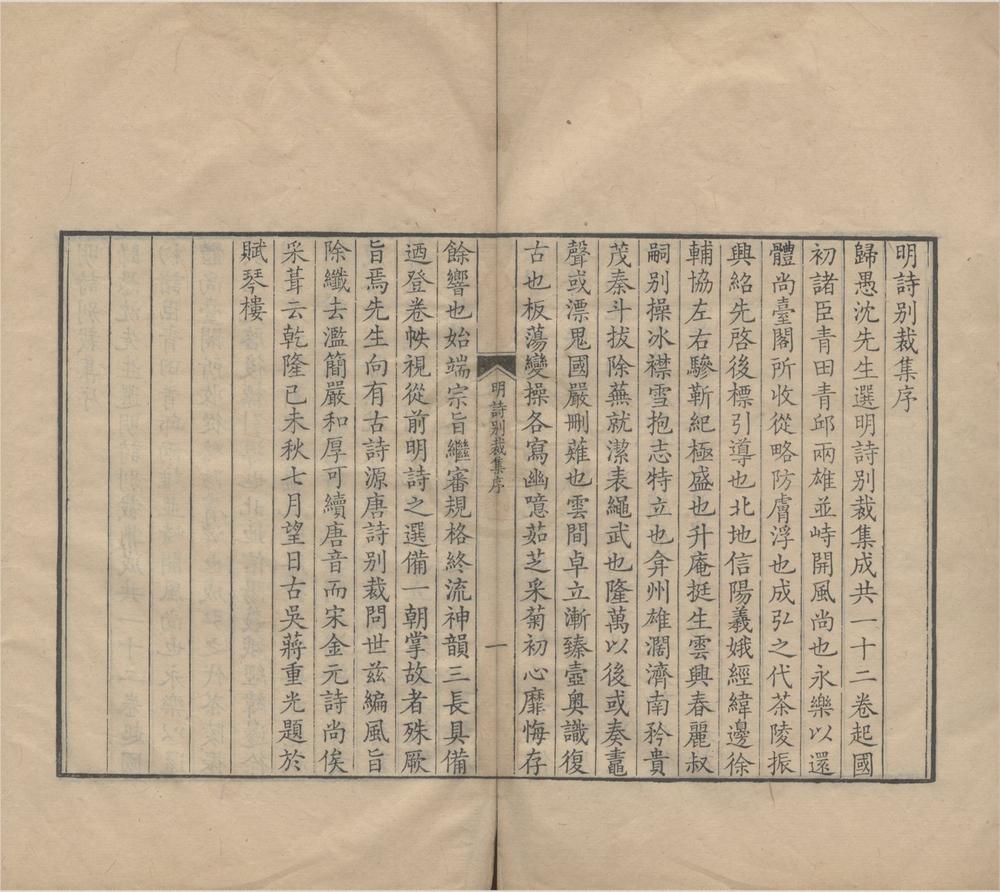 明詩别裁集序
歸愚沈先生選明詩别裁集成共一十二卷起國
初諸臣青田青邱兩雄並峙開風尚也永樂以還
體尚臺閣所收從略防膚浮也成弘之代茶陵振
興紹先啓後標引導也北地信陽羲娥經緯邊徐
輔協左右驂靳紀極盛也升庵挺生雲興春麗叔
嗣别操冰襟雪抱志特立也弇州雄濶濟南矜貴
茂秦斗拔除蕪就潔表繩武也隆萬以後或奏鼃
聲或漂鬼國嚴刪薙也雲間卓立漸臻壼奥識復
古也板蕩變操各寫幽噫茹芝采菊初心靡悔存
明詩别裁集序
一
餘響也始端宗旨繼審規格終流神韻三長具備
迺登卷帙視從前明詩之選備一朝掌故者殊厥
旨焉先生向有古詩源唐詩别裁問世兹編風旨
除纖去濫簡嚴和厚可續唐音而宋金元詩尚俟
采葺云乾隆己未秋七月望日古吳蔣重光題於
賦琴樓